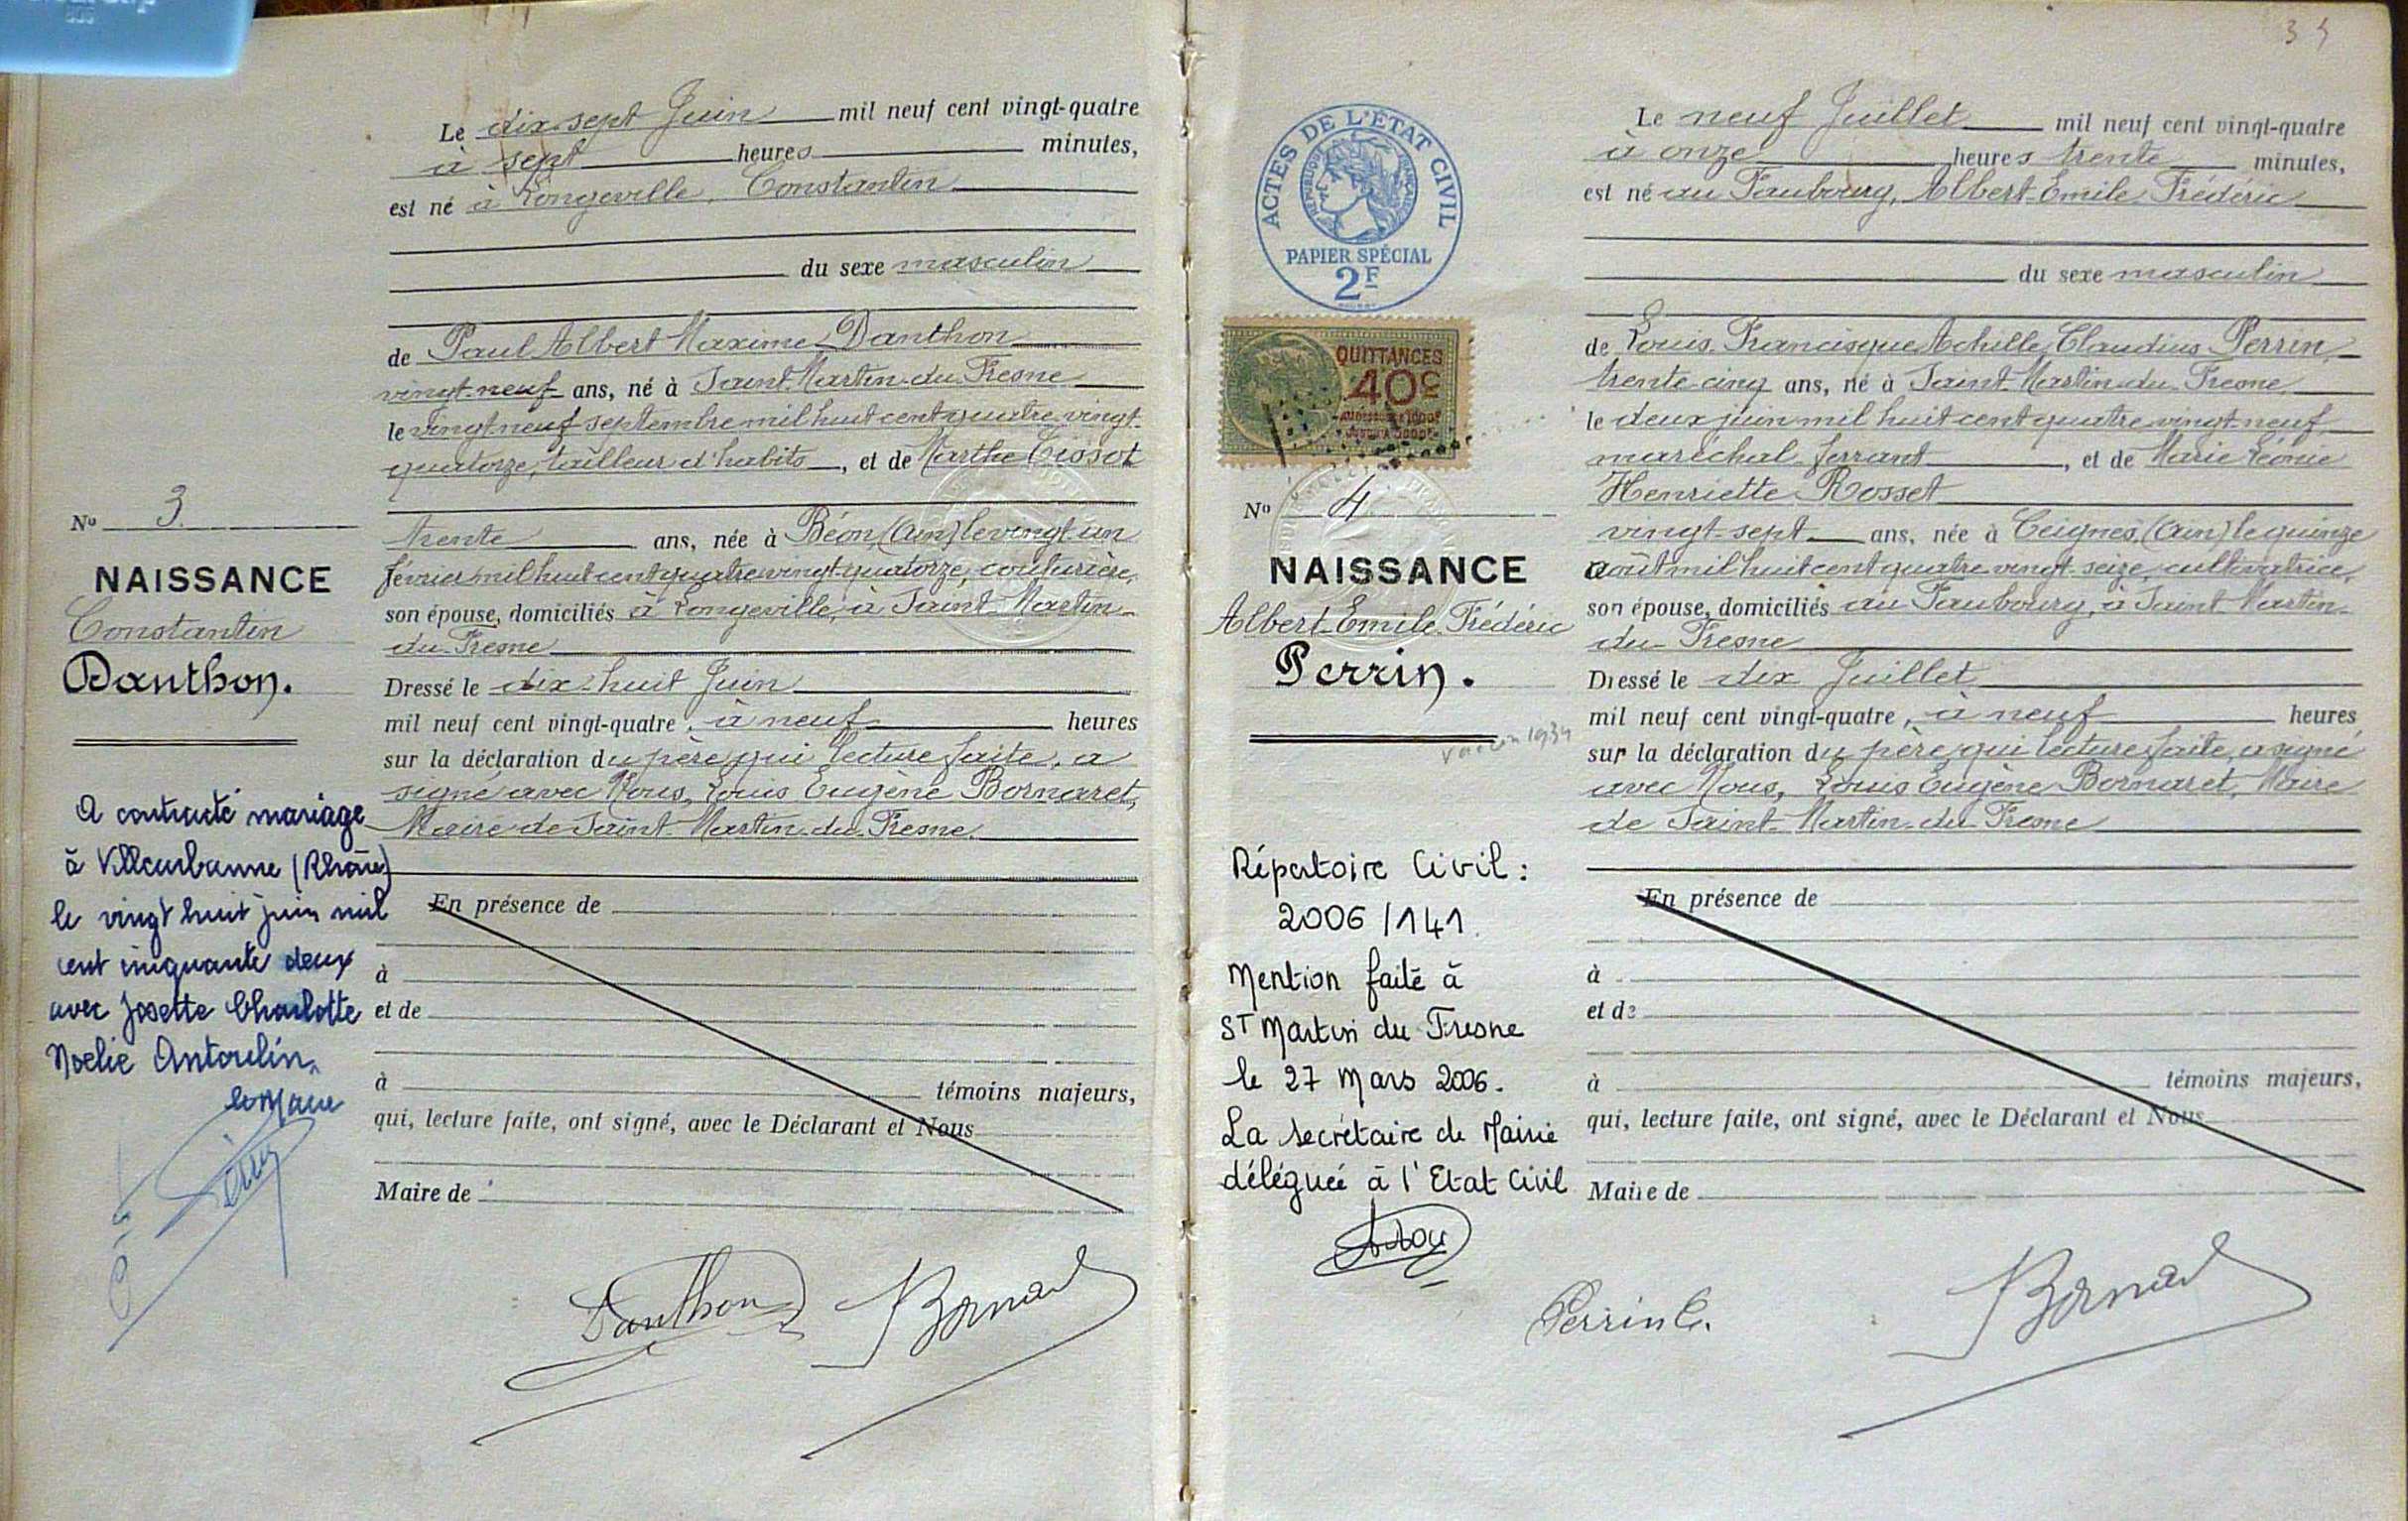 Le dix sept Juin mil neuf cent vingt-quatre
à sept heures minutes,
est né à Longeville, Constantin
du sexe masculin
de Paul Albert Maxime Danthon
vingt-neuf ans, né à Saint-Martin-du-Fresne
le vingt neuf septembre mil huit cent quatre vingt
quatorze, tailleur d'habits, et de Marthe Tissot
No 3
trente ans, née à Béon, (Ain) le vingt un
NAISSANCE
février mil huit cent quatre vingt quatorze, couturière,
Constantin
son épouse, domiciliés à Longeville, à Saint-Martin-
du-Fresne
Danthon.
Dressé le dix-huit Juin
mil neuf cent vingt-quatre, à neuf heures
sur la déclaration du père qui lecture faite, a
signé avec Nous, Louis Eugène Bornaret,
Maire de Saint-Martin-du-Fresne
A contracté mariage
à Villeurbanne (Rhône)
le vingt huit juin mil
cent cinquante deux
avec Josette Charlotte
Noelie Antoulin.
le Maire
En présence de
à
et de
à témoins majeurs,
qui, lecture faite, ont signé, avec le Déclarant et Nous
Maire de
Danthon Bornaret
34
ACTES DE L'ÉTAT CIVIL
RÉPUBLIQUE FRANÇAISE
PAPIER SPÉCIAL
2F
QUITTANCES
40c
Le neuf Juillet mil neuf cent vingt-quatre
à onze heures trente minutes,
est né au Faubourg, Albert-Emile-Frédéric
du sexe masculin
de Louis-Francisque Achille Claudius Perrin
trente-cinq ans, né à Saint-Martin-du-Fresne
le deux juin mil huit cent quatre vingt neuf
maréchal-ferrant, et de Marie Léonie
Henriette Rosset
No 4
vingt-sept ans, née à Ceignes, (Ain) le quinze
NAISSANCE
août mil huit cent quatre vingt seize, cultivatrice,
Albert-Emile-Frédéric
son épouse, domiciliés au Faubourg, à Saint-Martin-
du-Fresne
Perrin.
Dressé le dix Juillet
mil neuf cent vingt-quatre, à neuf heures
1934
sur la déclaration du père, qui lecture faite, a signé
avec Nous, Louis Eugène Bornaret, Maire
de Saint-Martin-du-Fresne
Répertoire Civil :
2006/141
Mention faite à
ST Martin du Fresne
le 27 Mars 2006.
La secrétaire de Mairie
déléguée à l'Etat Civil
En présence de
à
et de
à témoins majeurs,
qui, lecture faite, ont signé, avec le Déclarant et Nous
Maire de
Perrin C. Bornaret